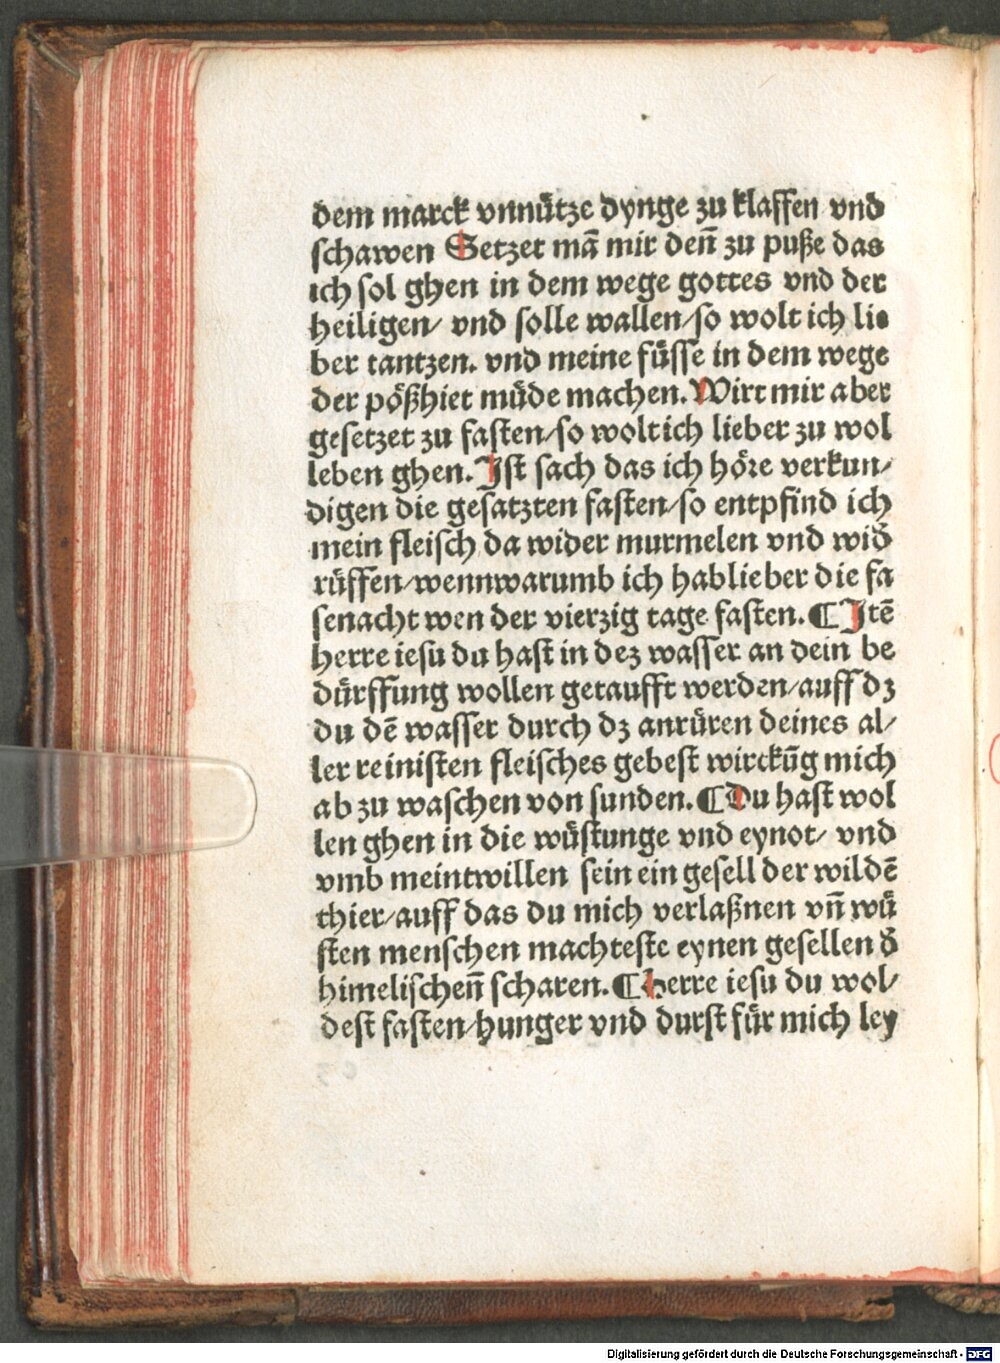 dem marck vnnütze dynge zu klaffen vnd
schawen Setzet mā mir deñ zu puße das
ich sol ghen in dem wege gottes vnd der
heiligen/ vnd solle wallen/so wolt ich lie
ber tantzen. vnd meine füsse in dem wege
der pößhiet müde machen. Wirt mir aber
gesetzet zu fasten/so wolt ich lieber zu wol
leben ghen. Ist sach das ich höre verkun/
digen die gesatzten fasten/so entpfind ich
mein fleisch da wider murmelen vnd wiď
rüffen/wennwarumb ich hab lieber die fa
senacht wen der vierzig tage fasten. ¶ Itē
herre iesu du hast in dez wasser an dein be
dürffung wollen getaufft werden/auff dz
du dē wasser durch dz anrüren deines al/
ler reinisten fleisches gebest wirckūg mich
ab zu waschen von sunden. ¶ Du hast wol
len ghen in die wüstunge vnd eynot/ vnd
vmb meintwillen sein ein gesell der wildē
thier/auff das du mich verlaßnen vñ wü
sten menschen machteste eynen gesellen ď
himelischeñ scharen. ¶ herre iesu du wol/
dest fasten/hunger vnd durst für mich ley
Digitalisierung gefördert durch die Deutsche Forschungsgemeinschaft - DFG